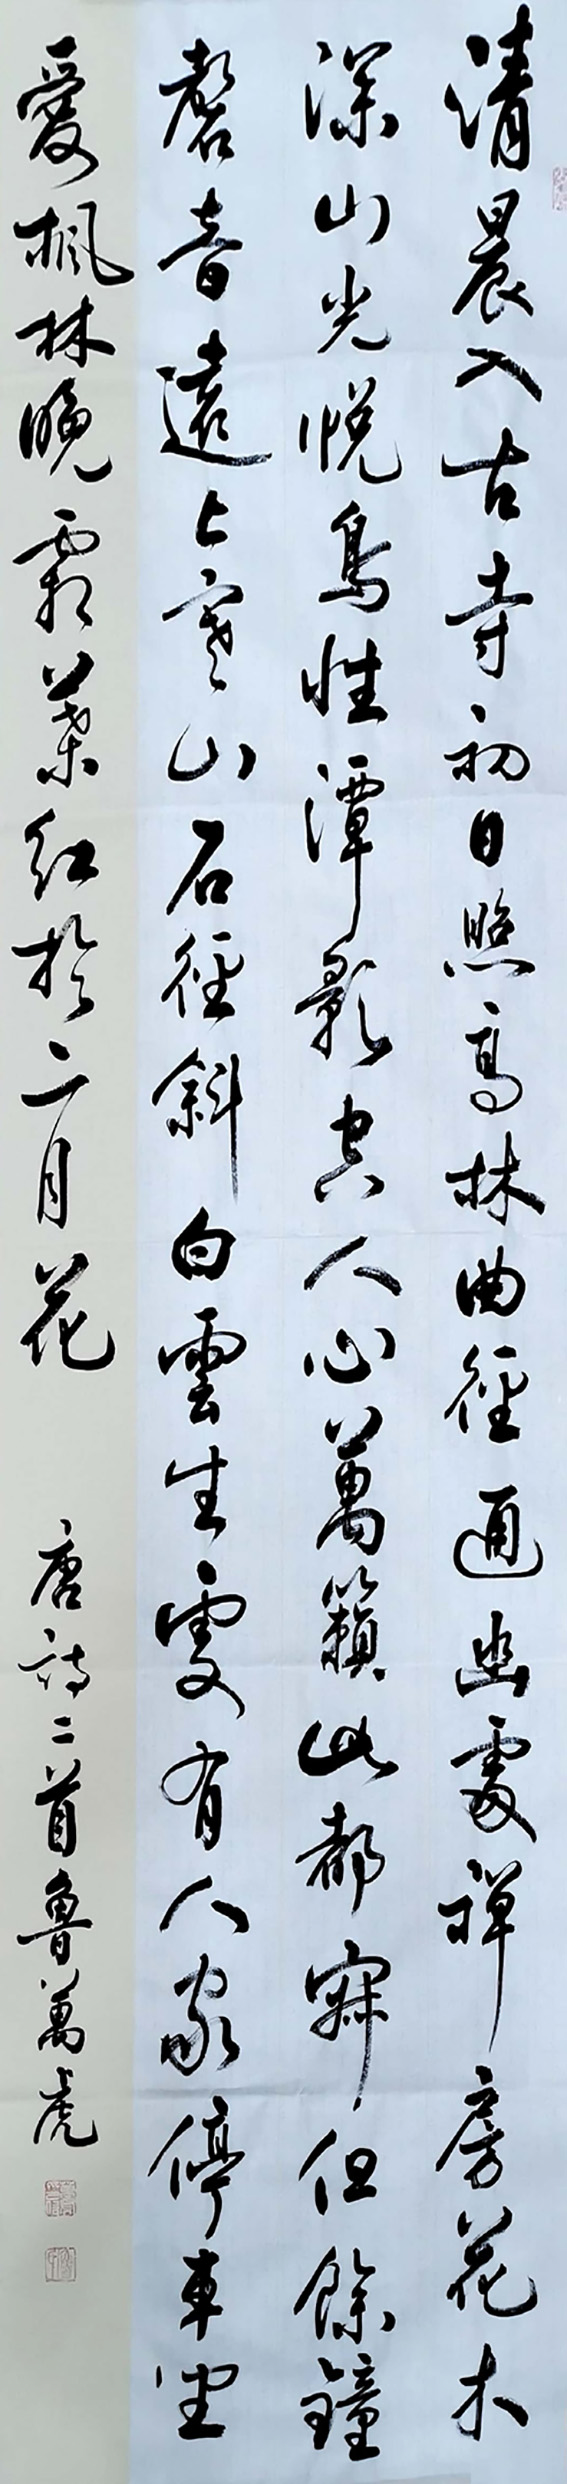 清晨入古寺初日照高林曲徑通幽處禅房花木
深山光悦鳥性潭影空人心萬籟此都寂但餘鐘
磬音遠上寒山石徑斜白雲生處有人家停車坐
愛楓林晚霜葉紅於二月花
唐詩二首魯萬虎